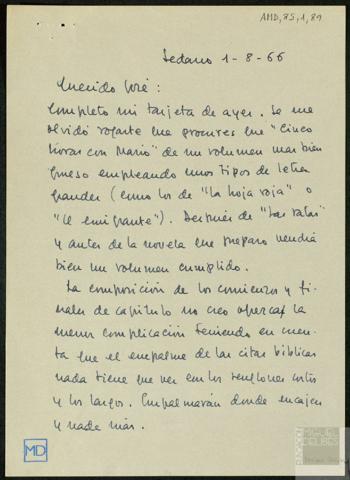 AMD,85,1,89
Sedano 1-8-66
Querido José:
Completo mi tarjeta de ayer. Se me
olvidó rogarte que procures que "Cinco
horas con Mario" dé un volumen más bien
grueso empleando unos tipos de letra
grandes (como los de "La hoja roja" o
"El emigrante"). Después de "Las ratas"
y antes de la novela que preparo vendría
bien un volumen cumplido.
La composición de los comienzos y fi-
nales de capítulo no creo ofrezca la
menor complicación teniendo en cuen-
ta que el empalme de las citas bíblicas
nada tiene que ver con los renglones cortos
y los largos. Empalmarán donde encajen
y nada más.
MD
MIGUEL
DELIBES